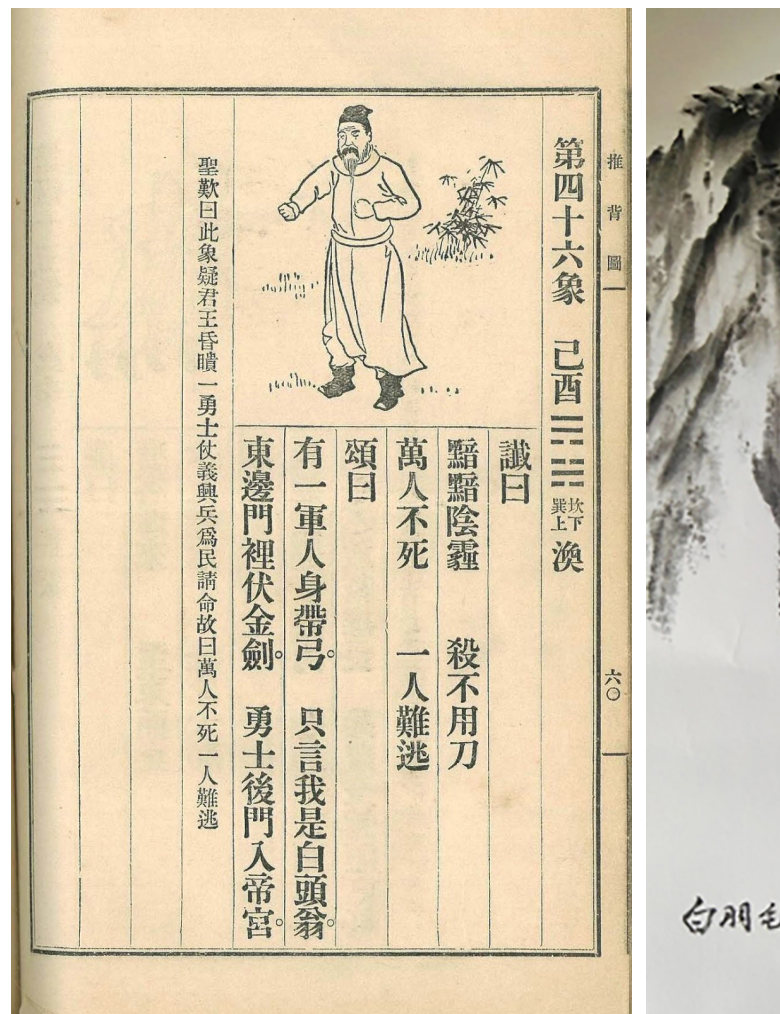 推背圖
六〇
第四十六象 己酉 坎下巽上 渙
讖曰
黯黯陰霾 殺不用刀
萬人不死 一人難逃
頌曰
有一軍人身帶弓。 只言我是白頭翁。
東邊門裡伏金劍。 勇士後門入帝宮。
聖歎曰此象疑君王昏瞶一勇士仗義興兵爲民請命故曰萬人不死一人難逃
白羽毛